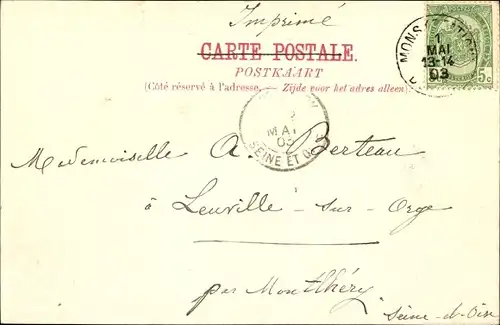 Imprimé
CARTE POSTALE.
POSTKAART
(Côté réservé à l'adresse. — Zijde voor het adres alleen).
MONS (STATION)
1
MAI
13-14
03
5c
MAI
03
SEINE ET O
Mademoiselle A. Berteau
à Leuville-sur-Orge
par Montlhéry
Seine-et-Oise